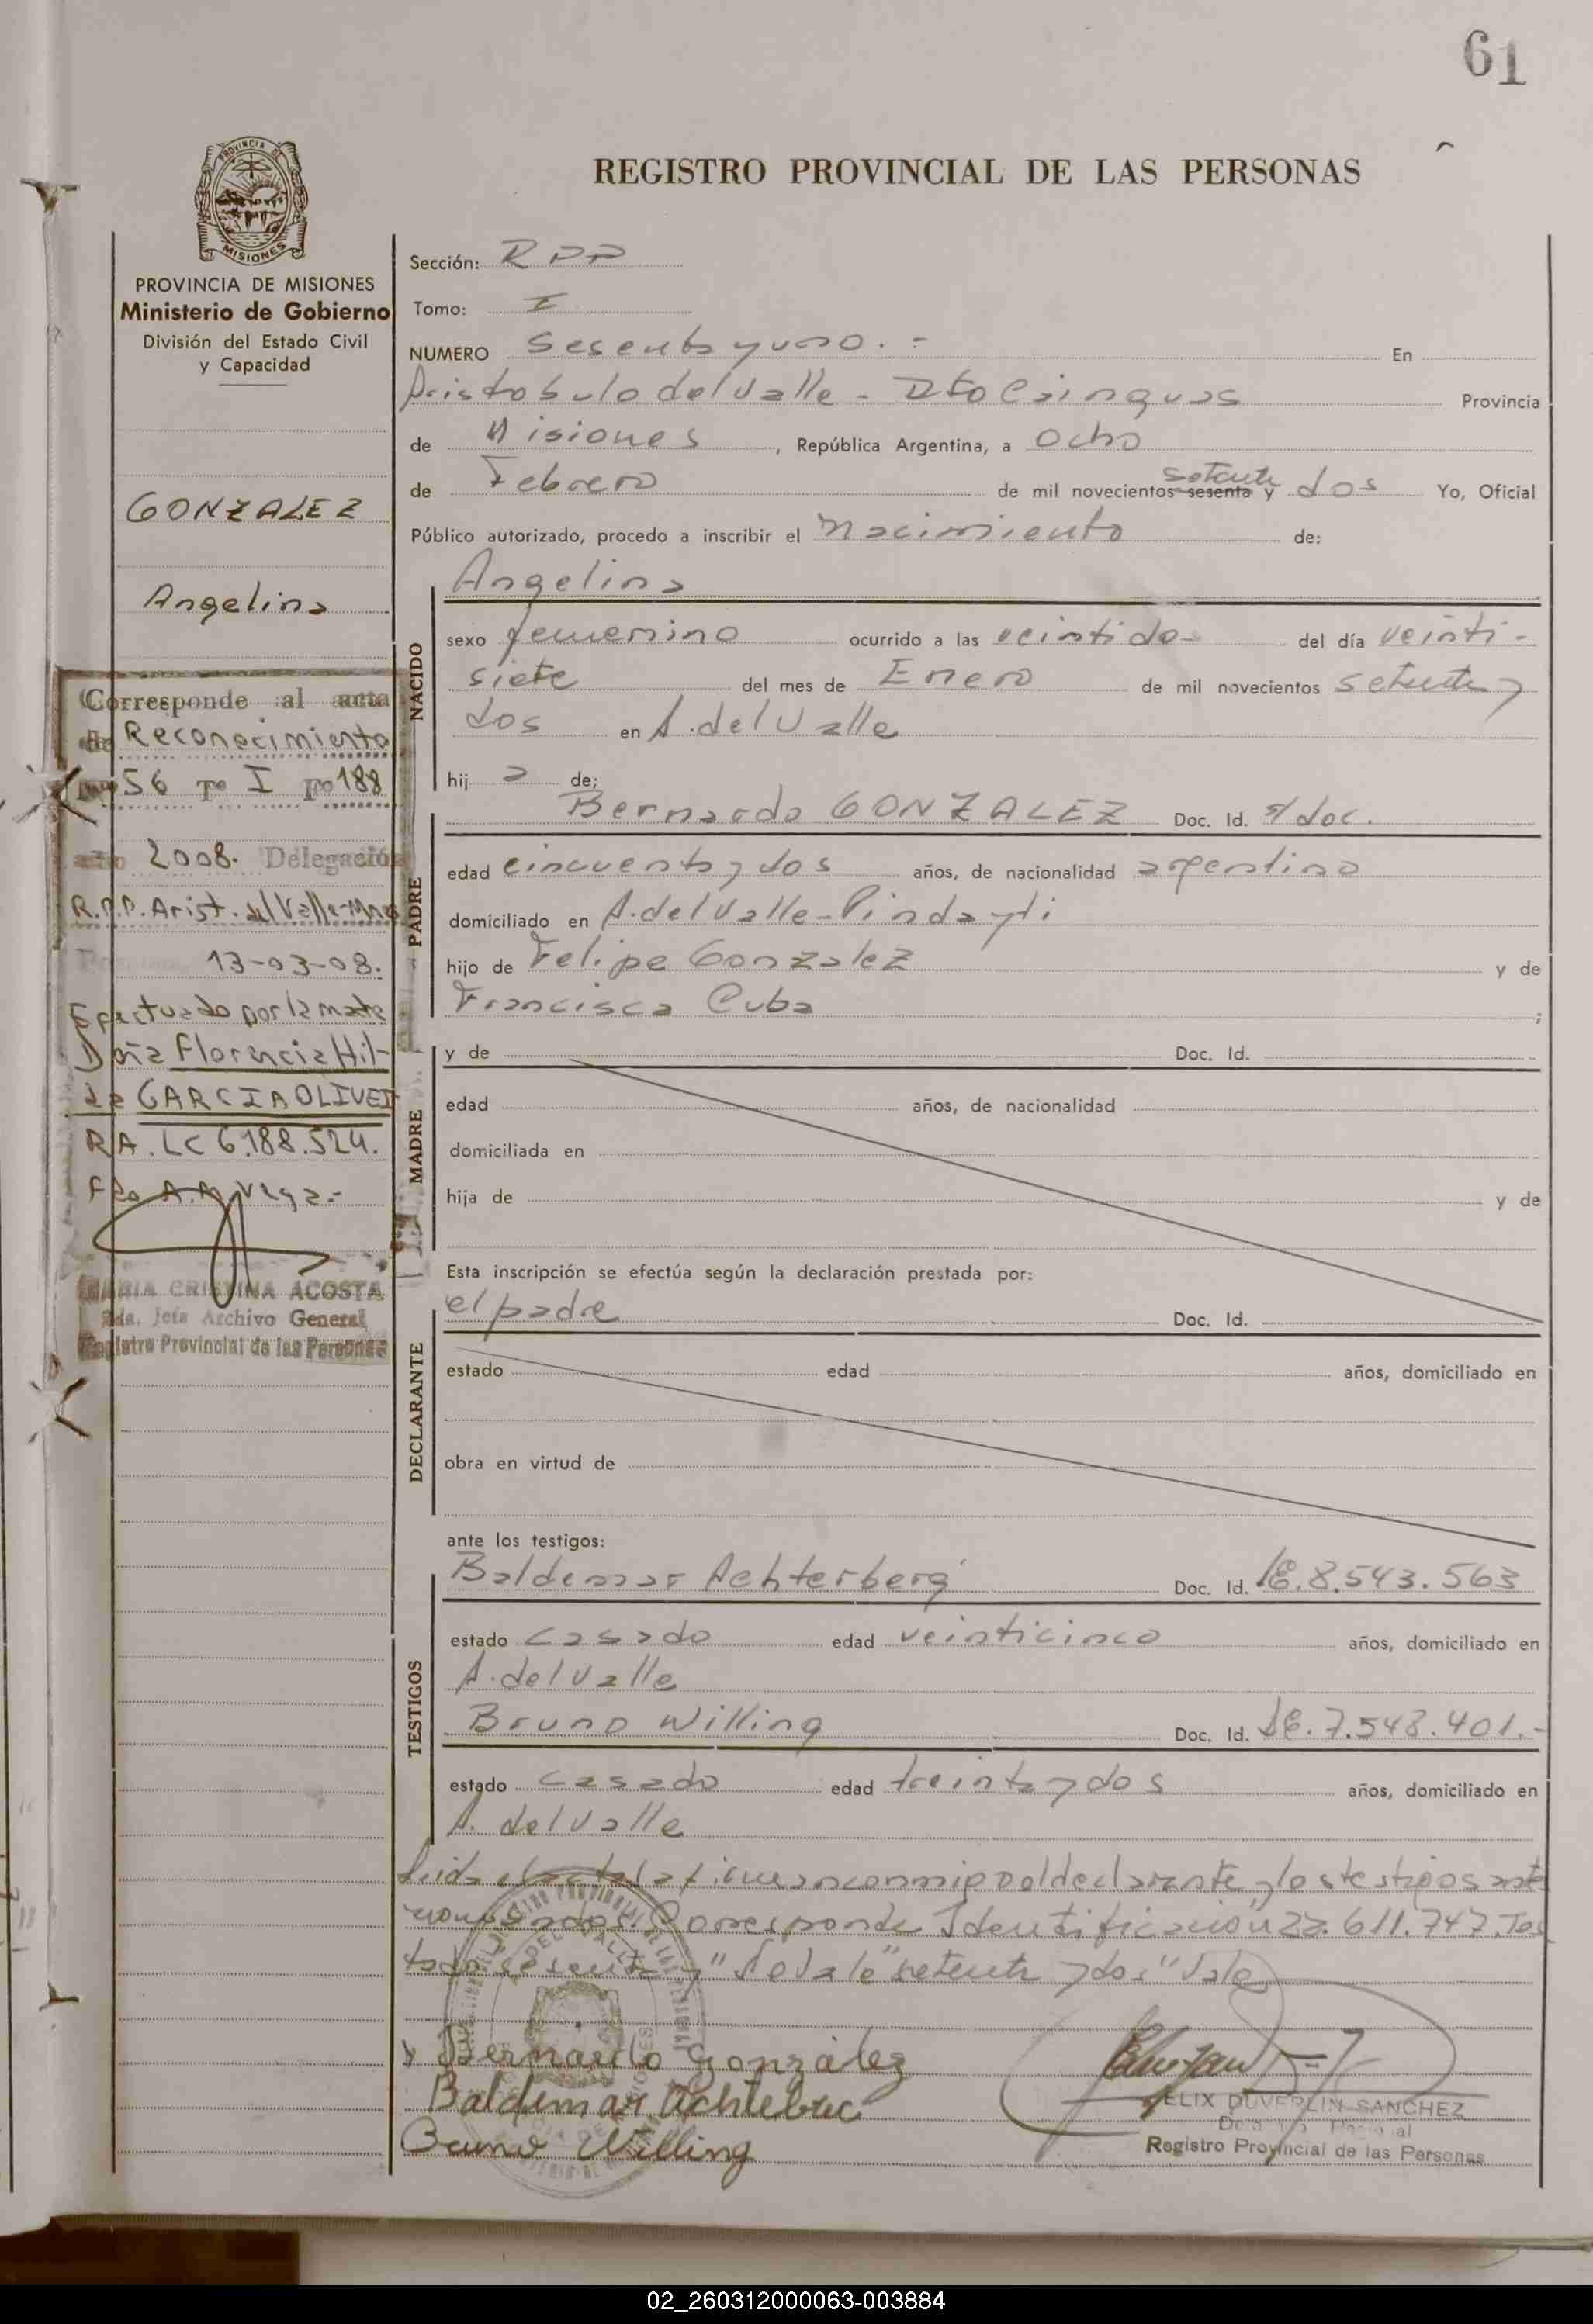 61
REGISTRO PROVINCIAL DE LAS PERSONAS
PROVINCIA DE
MISIONES
PROVINCIA DE MISIONES
Ministerio de Gobierno
División del Estado Civil
y Capacidad
GONZALEZ
Angelina
Corresponde al acta
de Reconocimiento
56 Tº I Fº 188
año 2008. Delegación
R.P.P. Arist. del Valle-Mnes
13-03-08.
Efectuado por la madre
Doña Florencia Hil-
da GARCIA OLIVEI
RA. LC 6.188.524.
Fdo A.M Vega.-
MARIA CRISTINA ACOSTA
Jefa Archivo General
Registro Provincial de las Personas
Sección: RPP
Tomo: I
NUMERO Sesenta y uno. - En
Aristobulo del Valle - Dto Cainguas Provincia
de Misiones, República Argentina, a Ocho
setenta
de Febrero de mil novecientos sesenta y dos Yo, Oficial
Público autorizado, procedo a inscribir el Nacimiento de:
NACIDO
Angelina
sexo femenino ocurrido a las veintido- del día veinti-
siete del mes de Enero de mil novecientos setenta y
dos en A. del Valle
hij a de;
PADRE
Bernardo GONZALEZ Doc. Id. s/doc.
edad cincuenta y dos años, de nacionalidad argentino
domiciliado en A. del Valle-Pindayti
hijo de Felipe Gonzalez y de
Francisca Cuba ;
MADRE
y de Doc. Id.
edad años, de nacionalidad
domiciliada en
hija de y de
Esta inscripción se efectúa según la declaración prestada por:
DECLARANTE
el padre Doc. Id.
estado edad años, domiciliado en
obra en virtud de
ante los testigos:
TESTIGOS
Baldemar Achterberg Doc. Id. 8.543.563
estado casado edad veinticinco años, domiciliado en
A. del Valle
Bruno Willing Doc. Id. 7.548.401.-
estado casado edad treinta y dos años, domiciliado en
A. del Valle
Leida el acta la firman conmigo el declarante y los testigos ante
mencionados. Corresponde Identificación 22.611.747. Tes
tado "sesenta y" No Vale "setenta y dos" Vale
Bernardo González
Baldemar
Bruno Willing
FELIX DUVERLIN SANCHEZ
Registro Provincial de las Personas
02_260312000063-003884